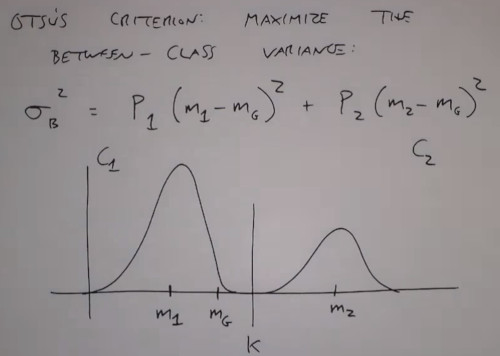 OTSU'S CRITERION: MAXIMIZE THE
BETWEEN-CLASS VARIANCE:
σ_B^2 = P_1 (m_1 - m_G)^2 + P_2 (m_2 - m_G)^2
C_1 C_2
m_1 m_G m_2
k